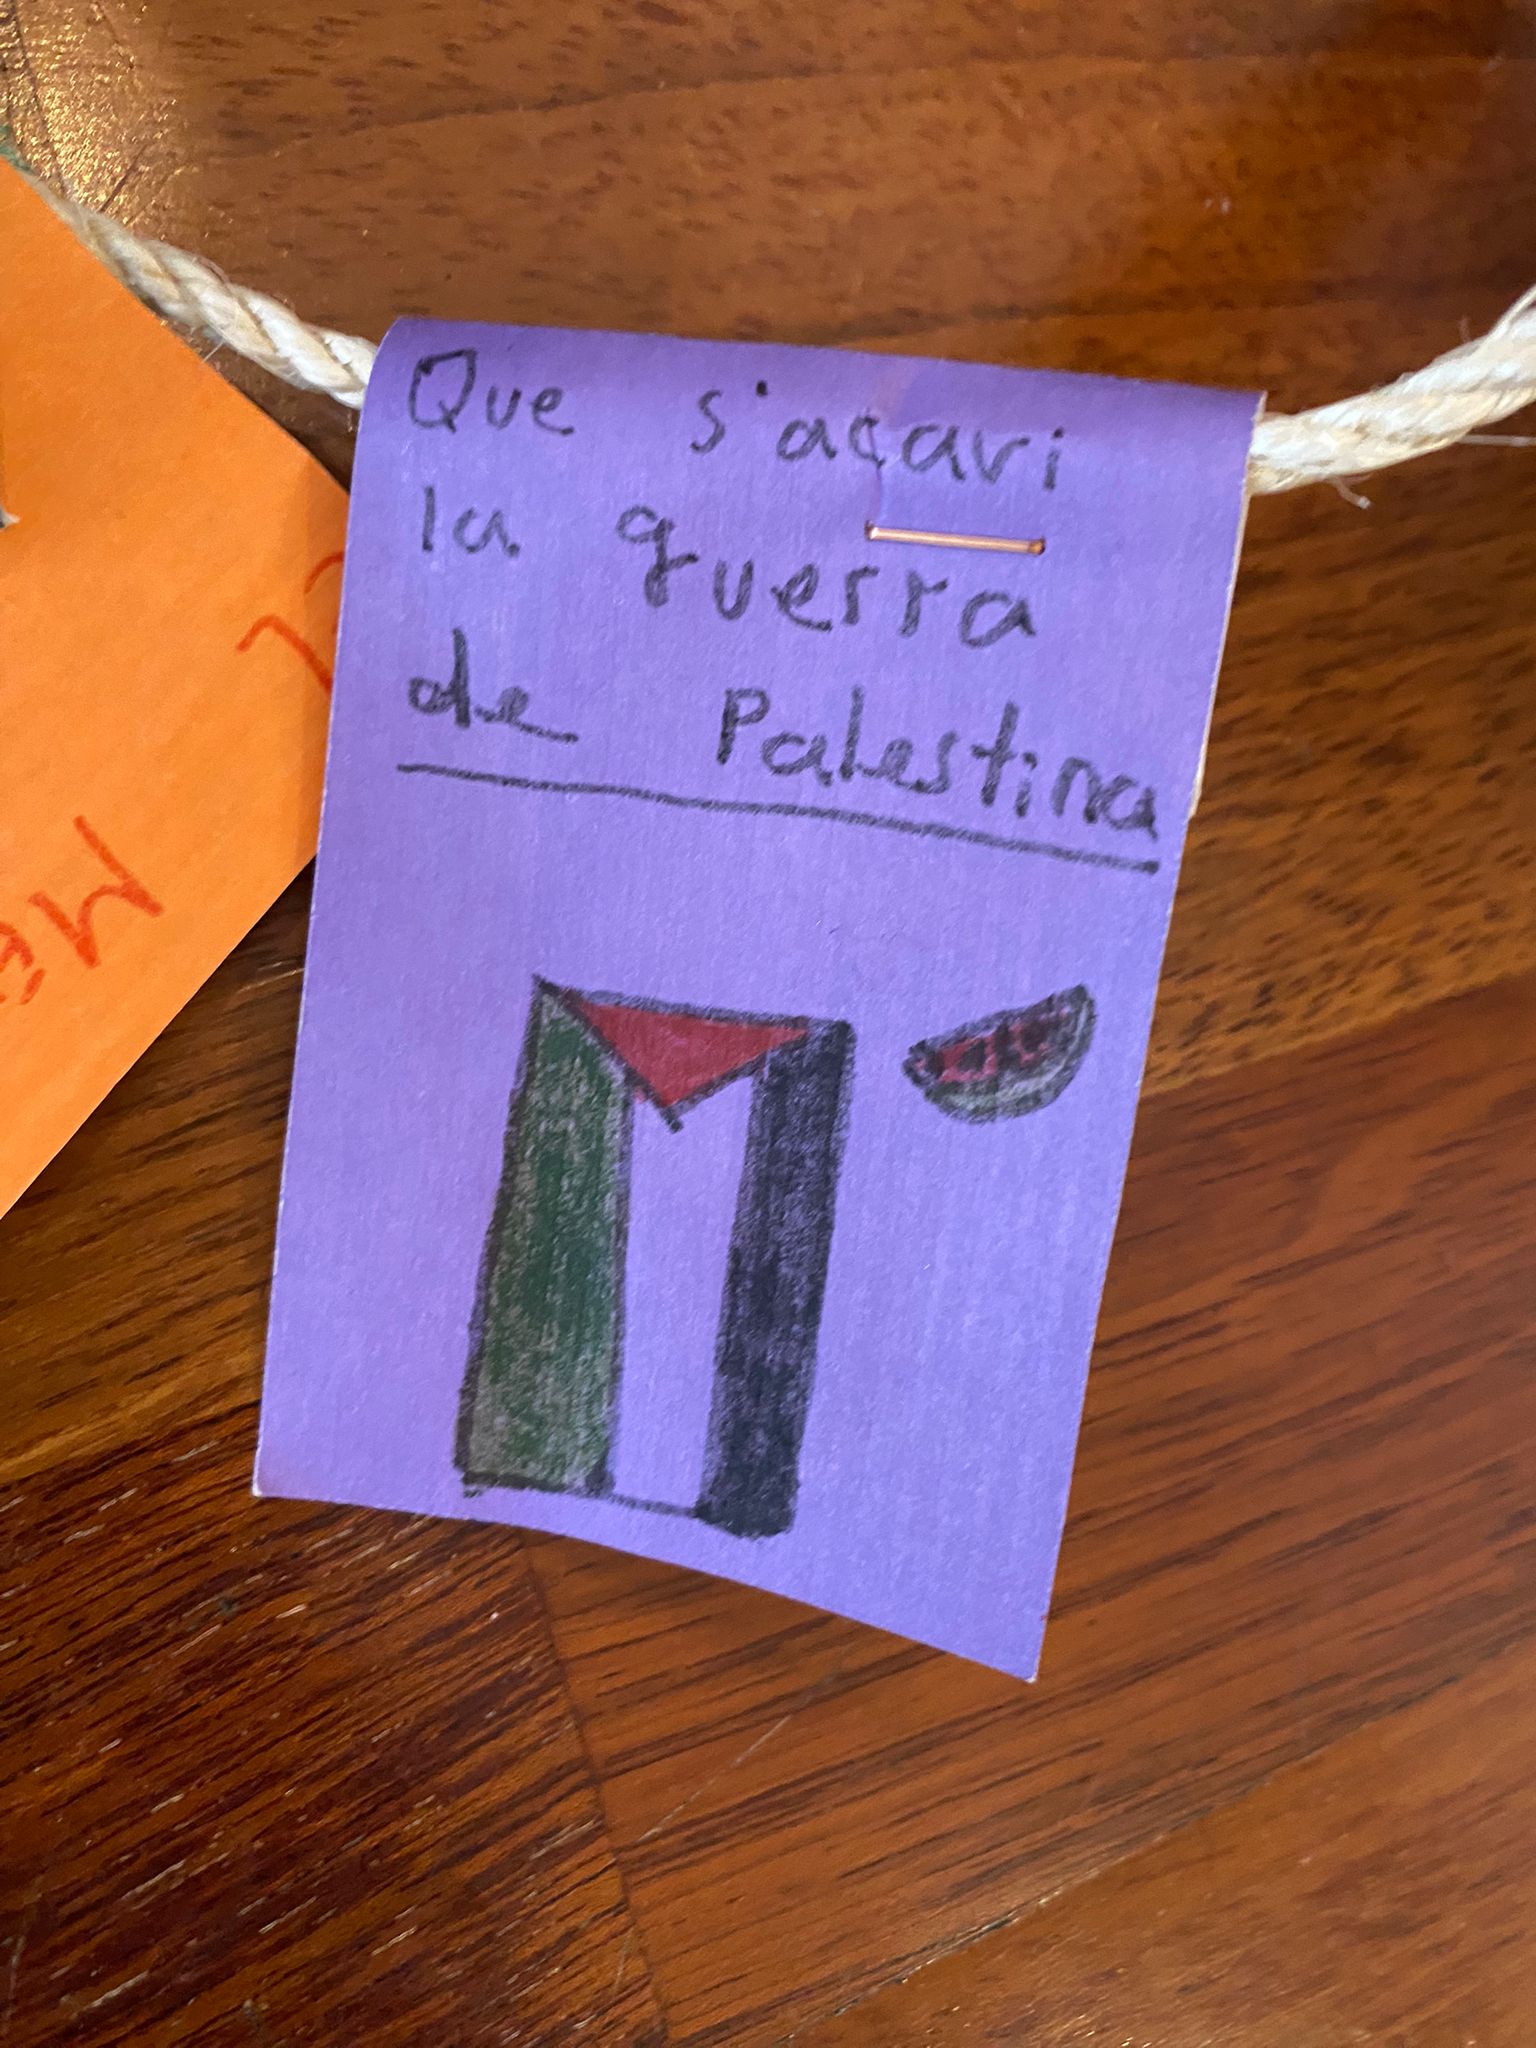 Que s'acavi
la guerra
de Palestina
MÉ